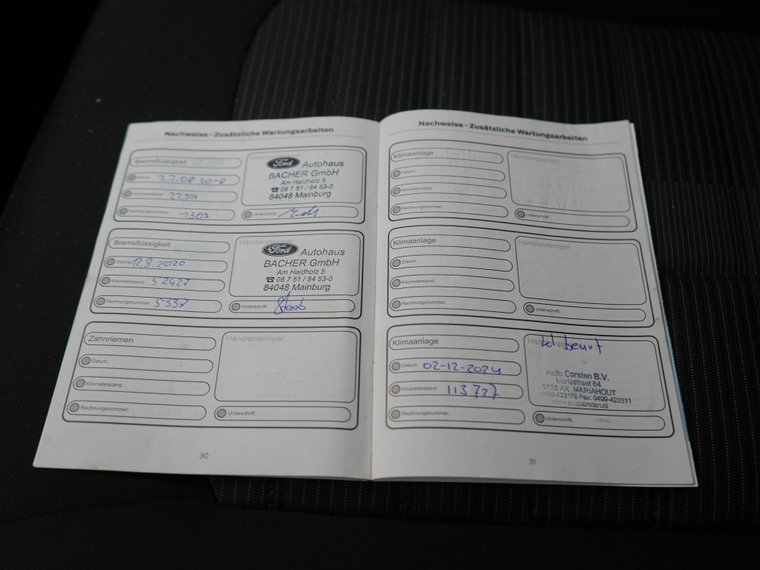 Nachweise - Zusätzliche Wartungsarbeiten
Bremsflüssigkeit
Händlerstempel
Datum: 27.08.2018
Kilometerstand:
Rechnungsnummer:
Unterschrift:
Ford Autohaus
BACHER GmbH
Am Haidholz 5
☎ 08 7 51 / 84 53-0
84048 Mainburg
Bremsflüssigkeit
Händlerstempel
Datum: 12.8.2020
Kilometerstand: 52427
Rechnungsnummer: 5337
Unterschrift:
Ford Autohaus
BACHER GmbH
Am Haidholz 5
☎ 08 7 51 / 84 53-0
84048 Mainburg
Zahnriemen
Händlerstempel
Datum:
Kilometerstand:
Rechnungsnummer:
Unterschrift:
30
Nachweise - Zusätzliche Wartungsarbeiten
Klimaanlage
Händlerstempel
Datum:
Kilometerstand:
Rechnungsnummer:
Unterschrift:
Klimaanlage
Händlerstempel
Datum:
Kilometerstand:
Rechnungsnummer:
Unterschrift:
Klimaanlage
Händlerstempel
Datum: 02-12-2024
Kilometerstand: 113727
Rechnungsnummer:
Auto Corsten B.V.
Mariastraat 64
5733 AX MARIAHOUT
Fax: 0499-423311
Unterschrift:
31